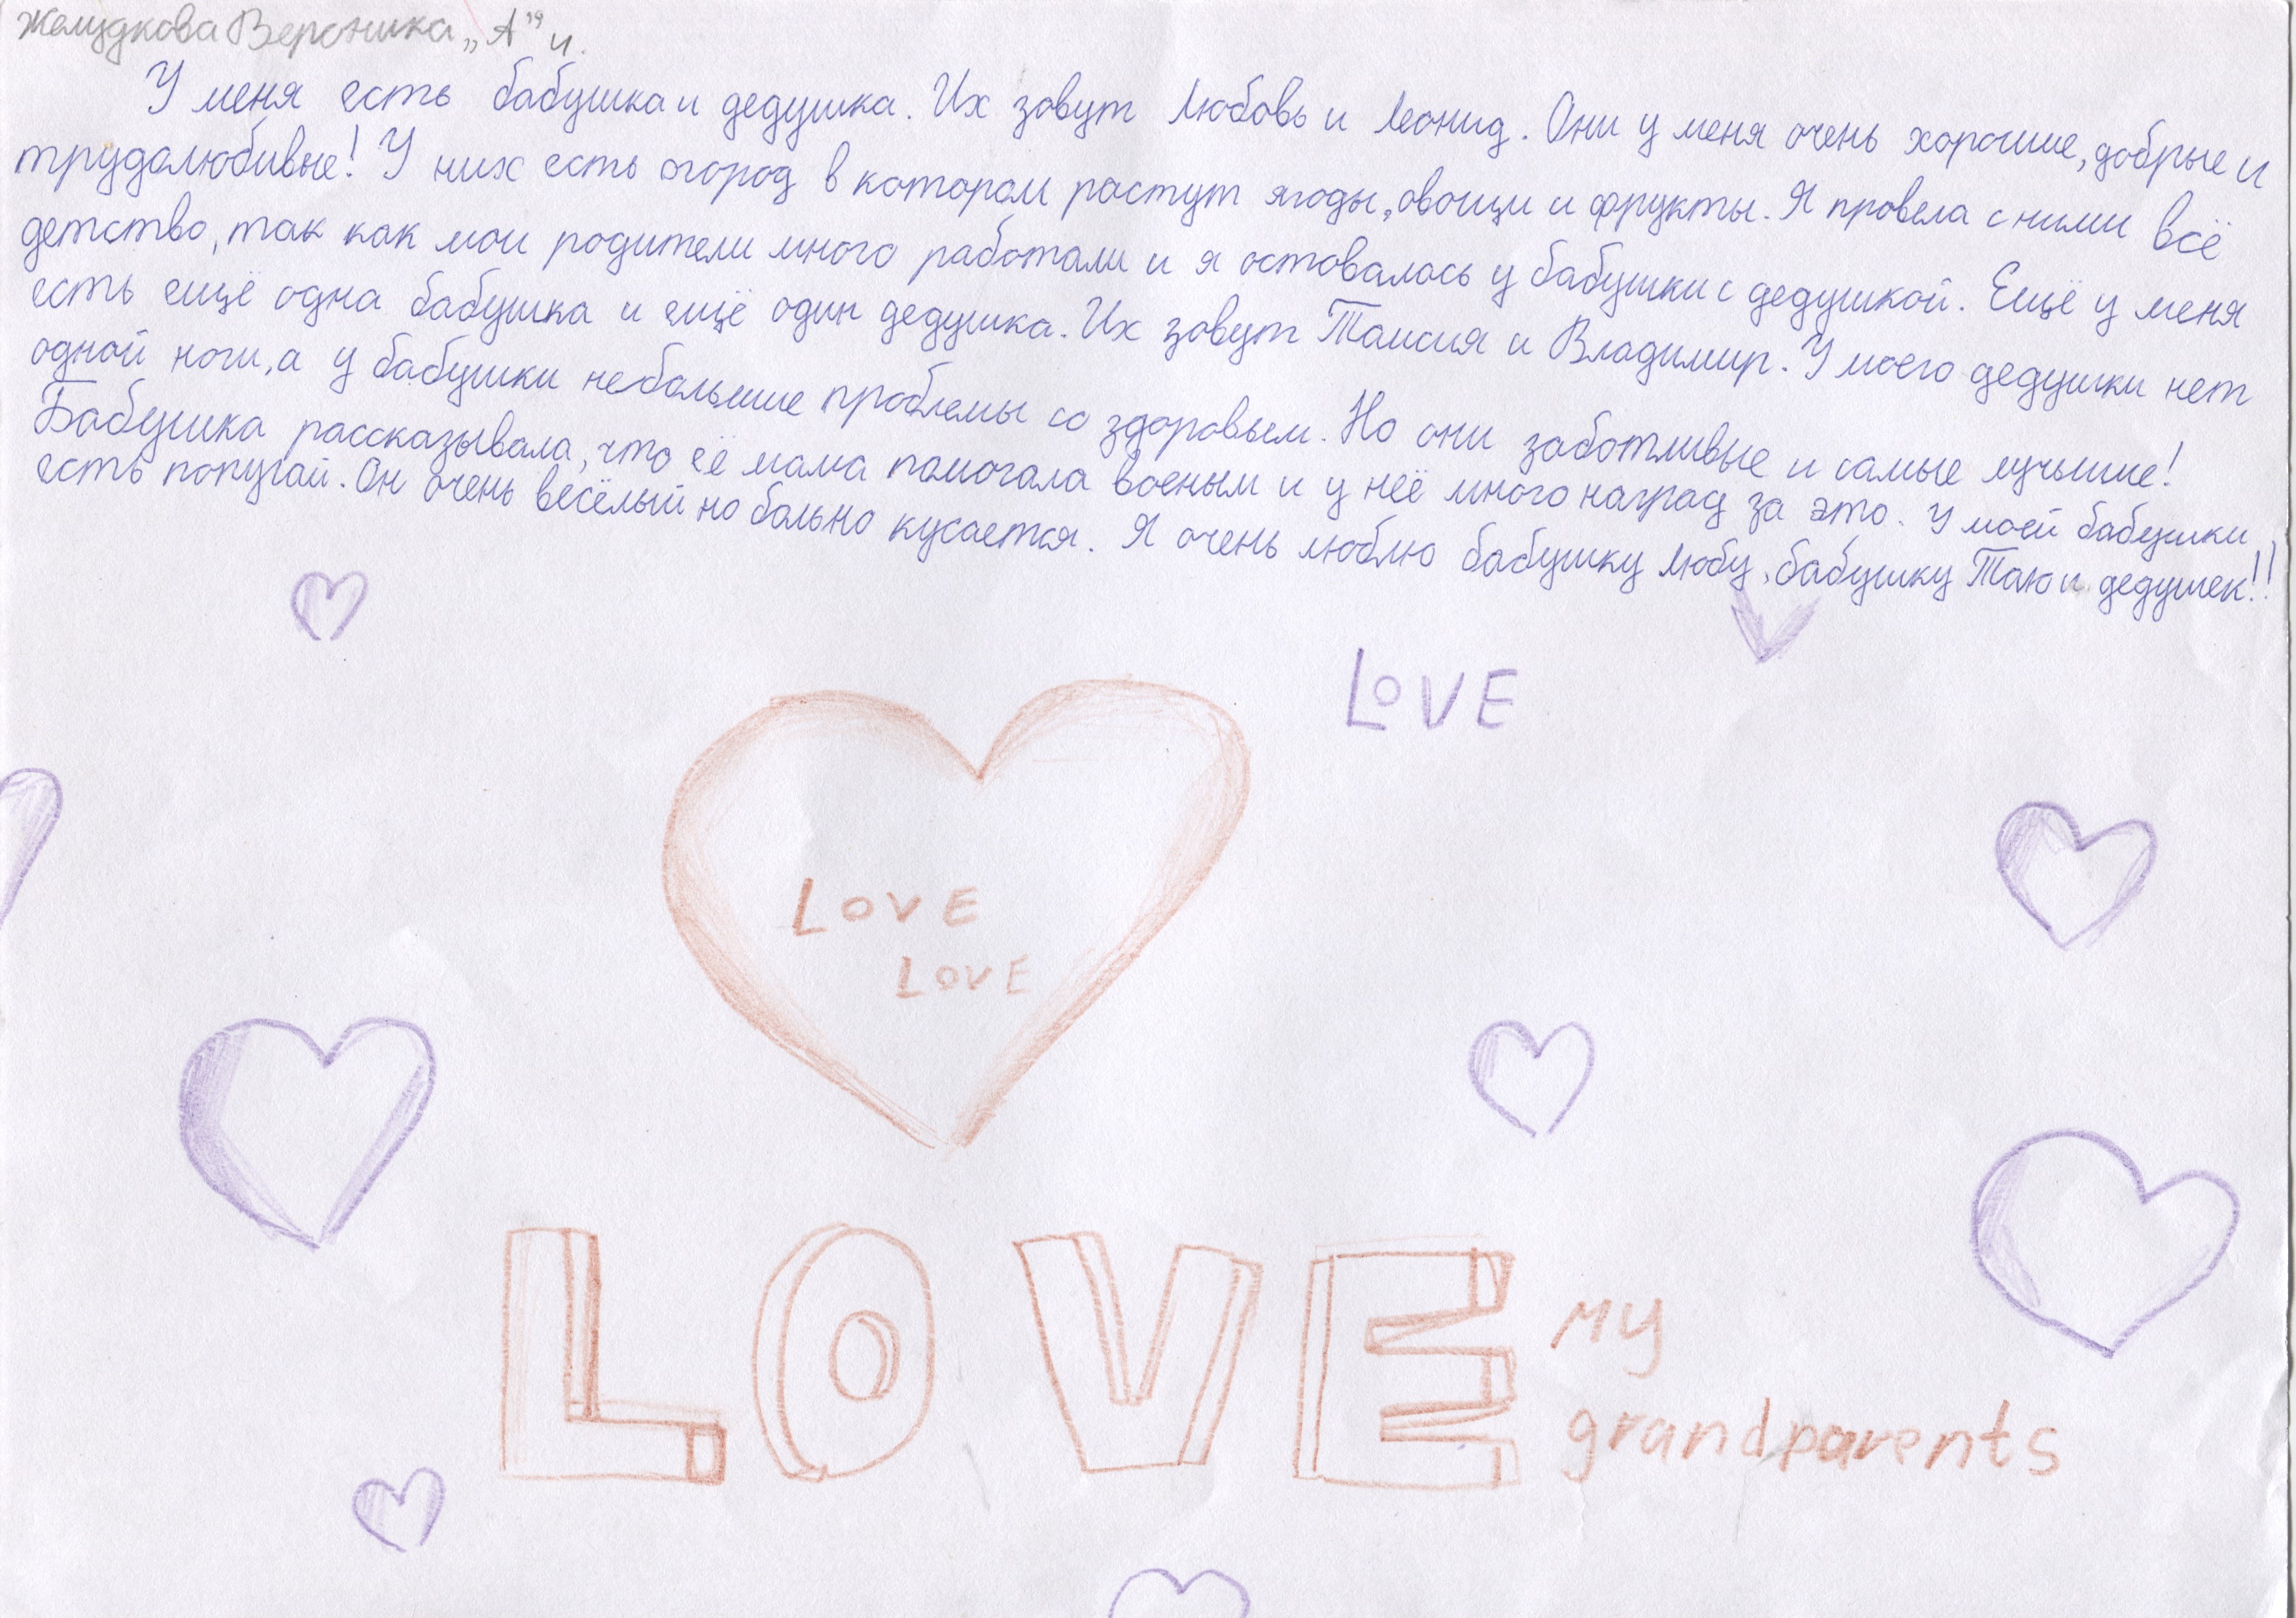 Желудкова Вероника „А" 4.
У меня есть бабушка и дедушка. Их зовут Любовь и Леонид. Они у меня очень хорошие, добрые и
трудолюбивые! У них есть огород в котором растут ягоды, овощи и фрукты. Я провела с ними всё
детство, так как мои родители много работали и я оставалась у бабушки с дедушкой. Ещё у меня
есть ещё одна бабушка и ещё один дедушка. Их зовут Таисия и Владимир. У моего дедушки нет
одной ноги, а у бабушки небольшие проблемы со здоровьем. Но они заботливые и самые лучшие!
Бабушка рассказывала, что её мама помогала военым и у неё много наград за это. У моей бабушки
есть попугай. Он очень весёлый но больно кусается. Я очень люблю бабушку Любу, бабушку Таю и дедушек!!
LOVE
LOVE
LOVE
LOVE my
grandparents